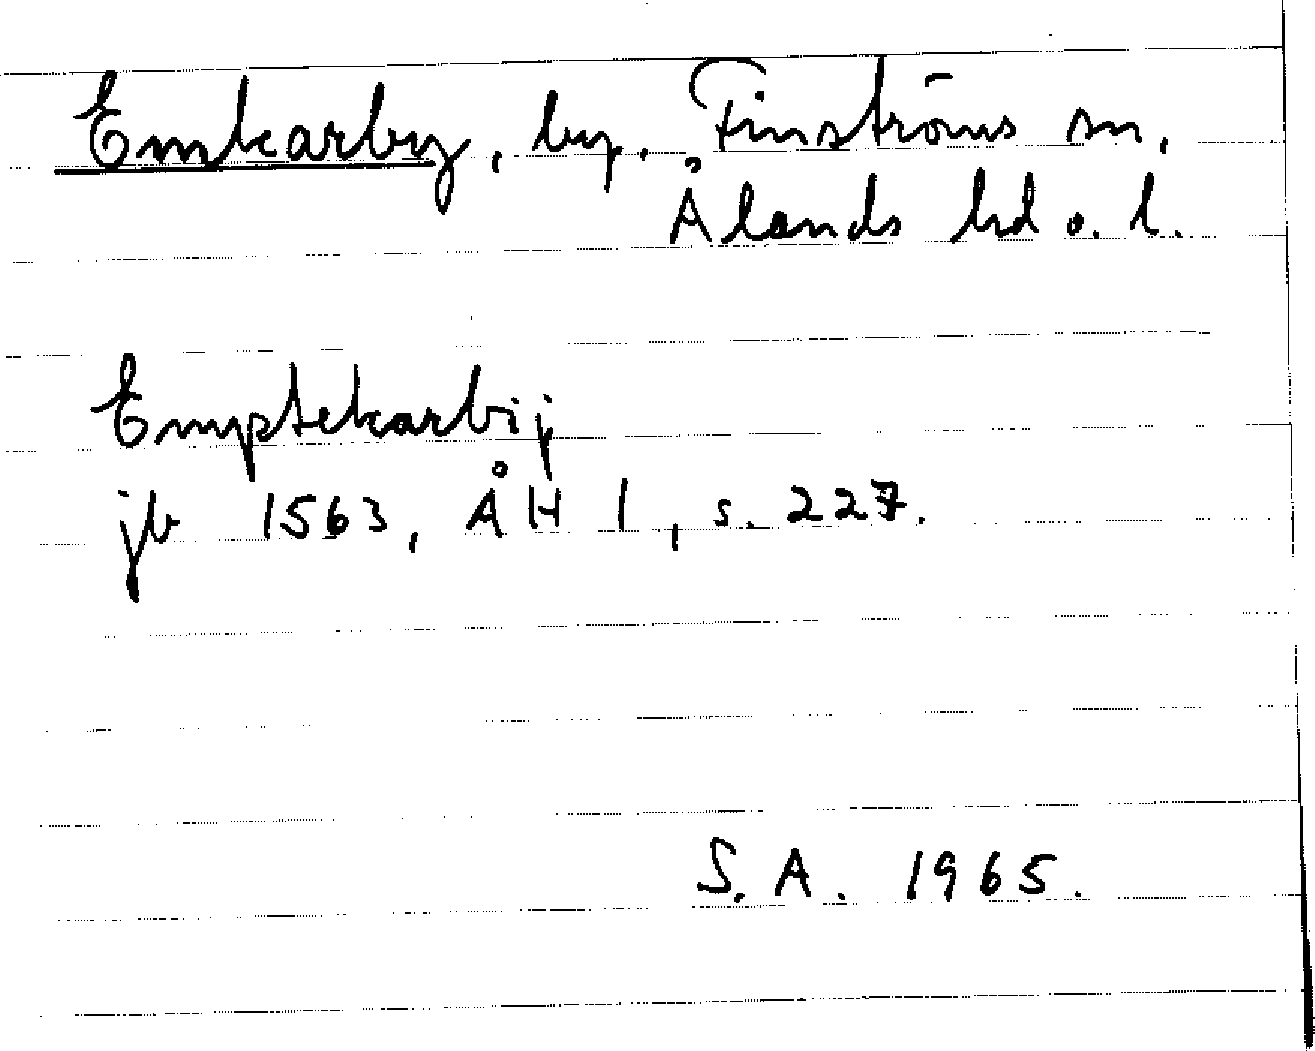 Emkarby, by, Finströms sn,
Ålands hd o. l.
Emptekarbij
jb 1563, ÅH I, s. 227.
S. A. 1965.